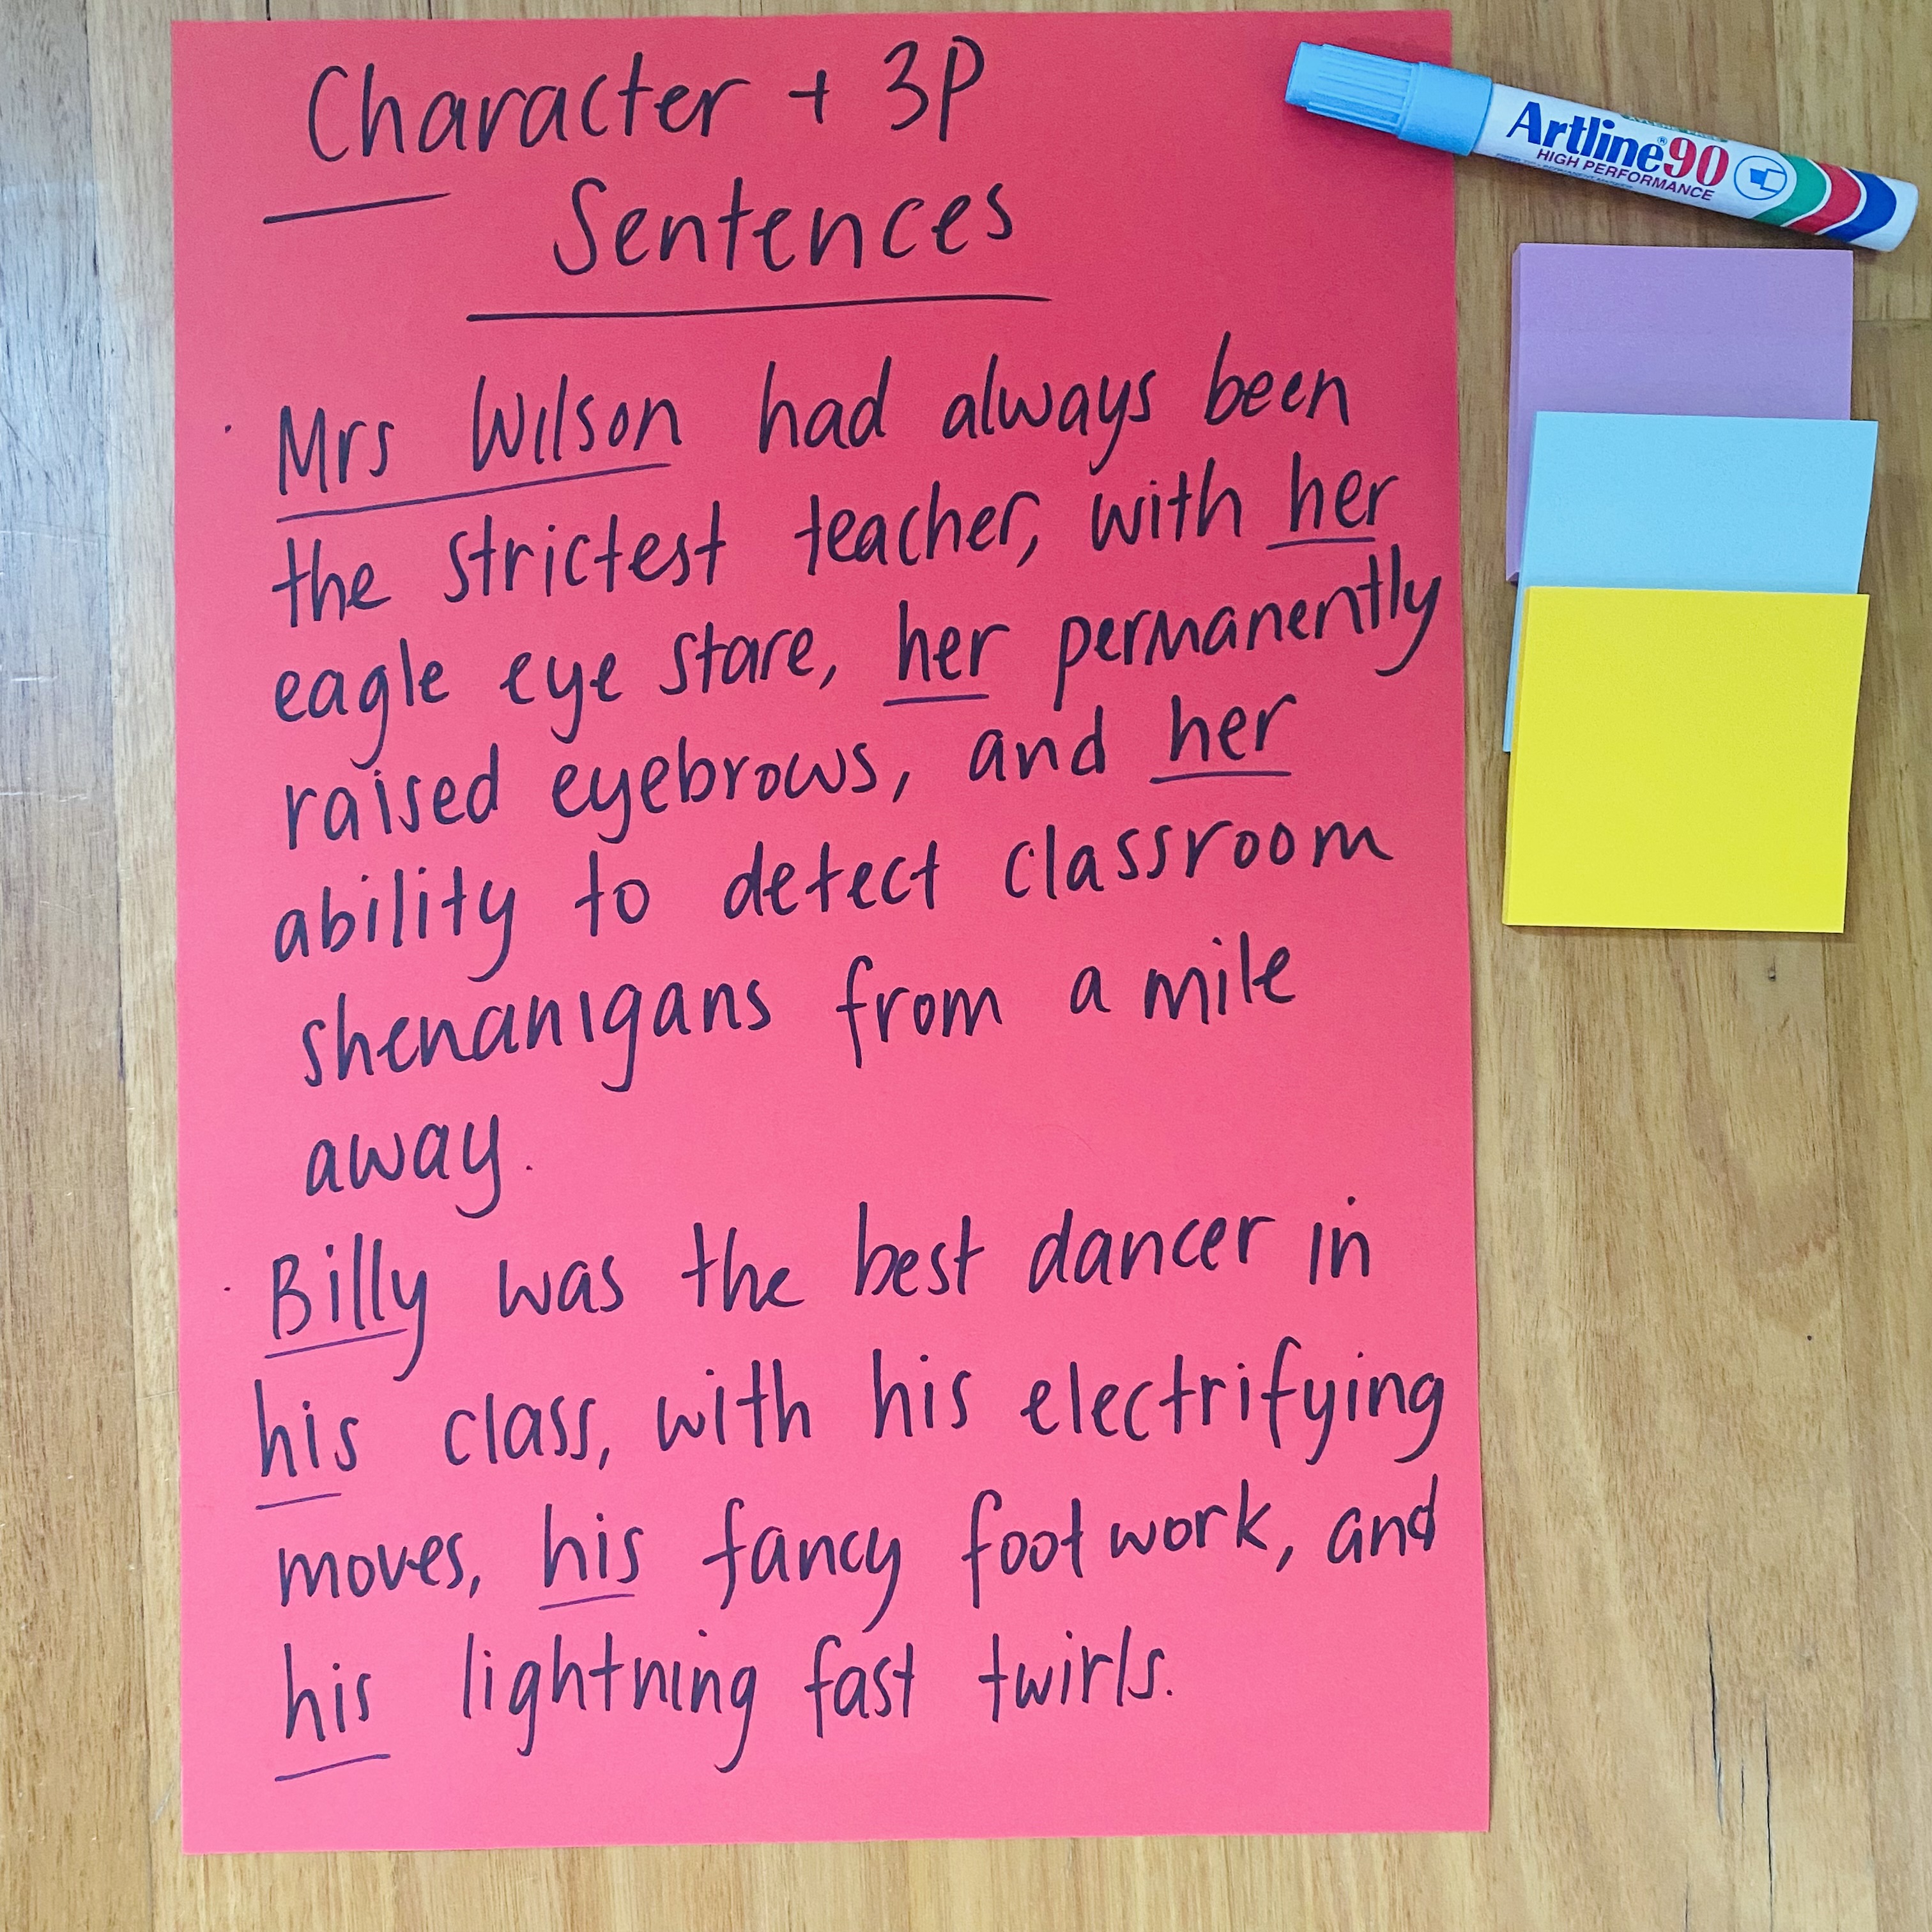 Character + 3P
Sentences
· Mrs Wilson had always been
the strictest teacher, with her
eagle eye stare, her permanently
raised eyebrows, and her
ability to detect classroom
shenanigans from a mile
away.
· Billy was the best dancer in
his class, with his electrifying
moves, his fancy footwork, and
his lightning fast twirls.
Artline®90
HIGH PERFORMANCE